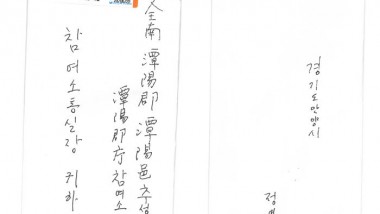 全南 潭陽郡 潭陽邑 추성
潭陽郡庁 참여소
참여소통실장 귀하
경기도안양시
정